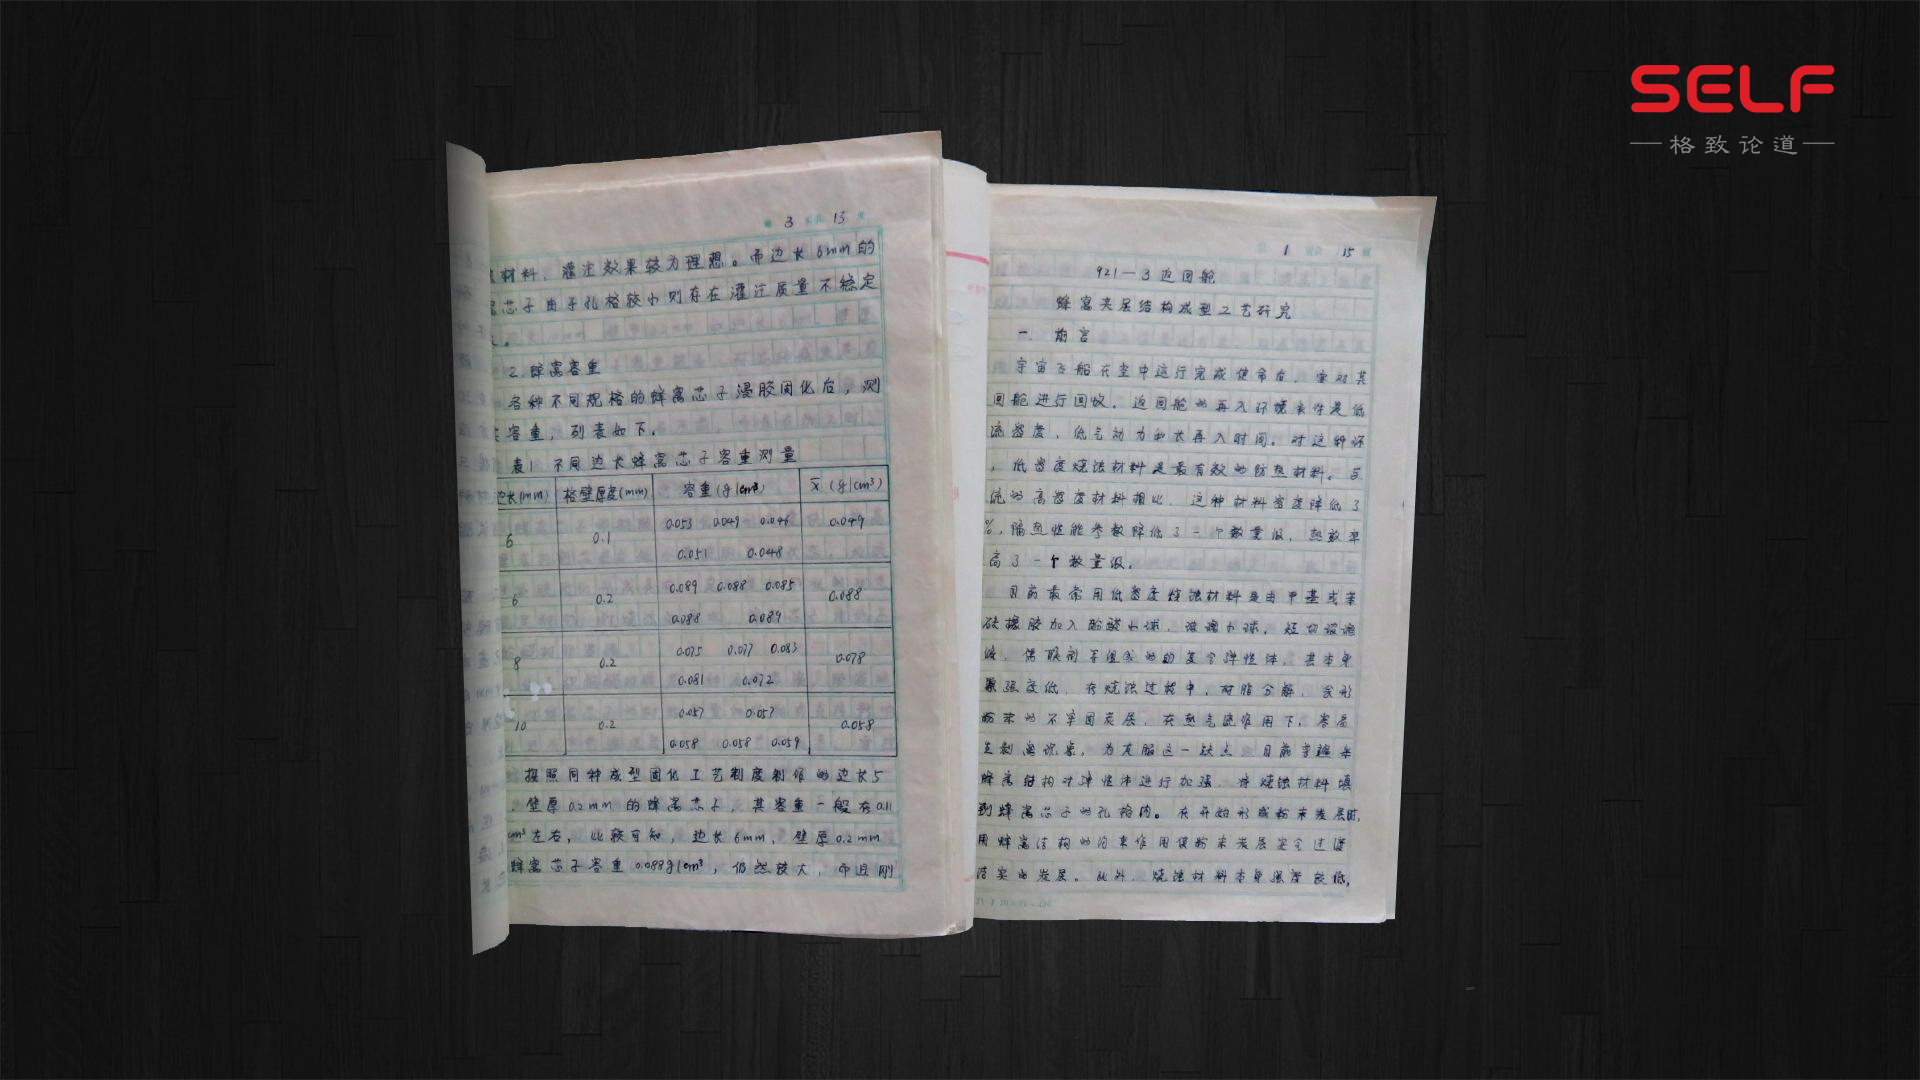 SELF
格致论道
3 15
材料，灌注效果较为理想。而边长6mm的
芯子由于孔格较小则存在灌注质量不稳定
2.蜂窝容重
各种不同规格的蜂窝芯子浸胶固化后，测
容重，列表如下。
表1 不同边长蜂窝芯子容重测量
边长(mm) 格壁厚度(mm) 容重(g/cm³) x̄(g/cm³)
6 0.1 0.053 0.049 0.046 0.049
0.051 0.048
6 0.2 0.089 0.088 0.085 0.088
0.088 0.089
8 0.2 0.075 0.077 0.083 0.078
0.081 0.072
10 0.2 0.057 0.057 0.058
0.058 0.058 0.059
按照同种成型固化工艺制度制作的边长5
壁厚0.2mm的蜂窝芯子，其容重一般在0.11
cm³左右，比较可知，边长6mm，壁厚0.2mm
蜂窝芯子容重0.088g/cm³，仍然较大，而且刚
1 15
921—3返回舱
蜂窝夹层结构成型工艺研究
一. 前言
宇宙飞船在空中运行完成使命后，要对其
回舱进行回收。返回舱的再入环境条件是低
流密度，低气动力和长再入时间。对这种环
，低密度烧蚀材料是最有效的防热材料。与
流的高密度材料相比，这种材料密度降低了
%，隔热性能参数降低了一个数量级，热效率
高了一个数量级。
目前最常用低密度烧蚀材料是由甲基或苯
硅橡胶加入酚醛小球，玻璃小球，短切玻璃
，偶联剂等组成的的复合弹性体，其本身
强度低，在烧蚀过程中，树脂分解，会形
粉末的不牢固炭层，在热气流作用下，容易
生剥离现象。为克服这一缺点 目前普遍采
蜂窝结构对弹性体进行加强，将烧蚀材料填
到蜂窝芯子的孔格内。在开始形成粉末炭层时，
用蜂窝结构的约束作用使粉末炭层安全过渡
结实的炭层。此外，烧蚀材料本身强度较低，